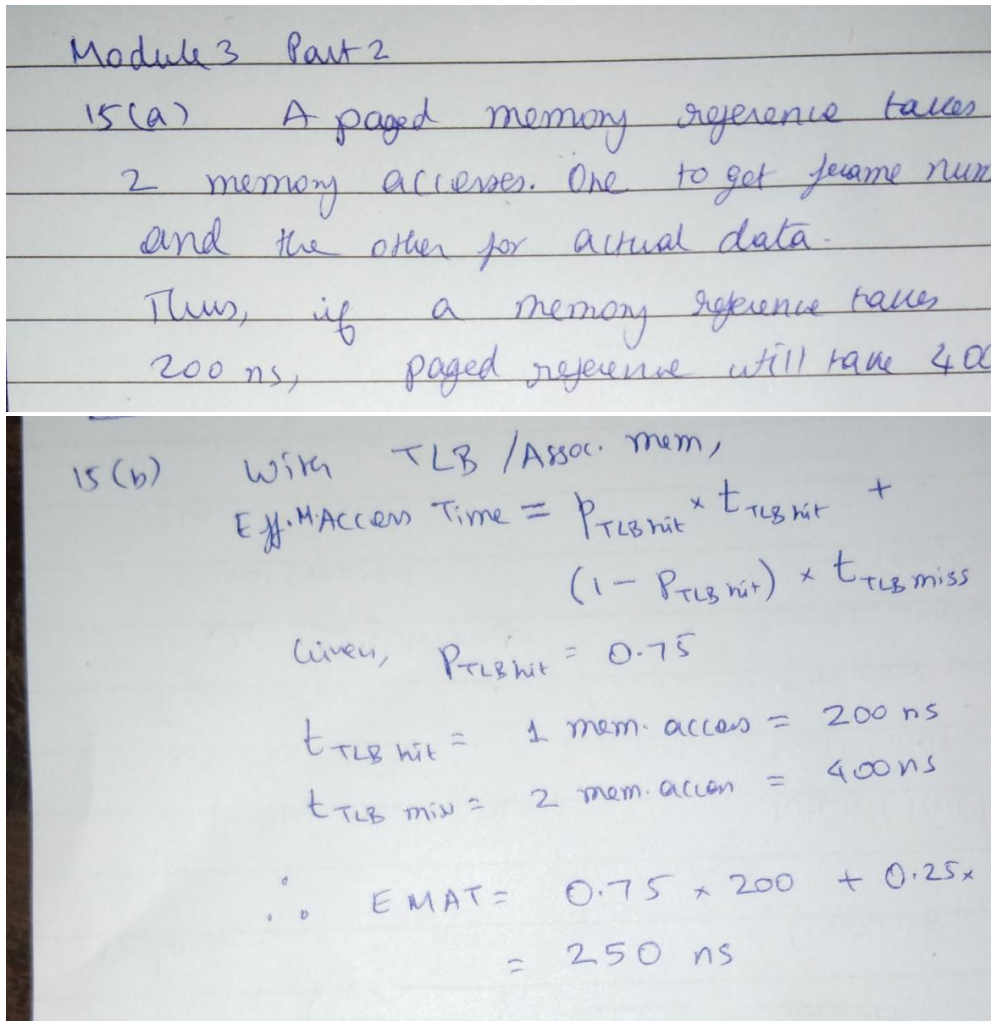 Module 3 Part 2
15(a) A paged memory reference takes
2 memory accesses. One to get frame num
and the other for actual data.
Thus, if a memory reference takes
200 ns, paged reference will take 400
15(b) With TLB /Assoc. mem,
Eff.M.Access Time = P_TLB hit × t_TLB hit +
(1 - P_TLB hit) × t_TLB miss
Given, P_TLB hit = 0.75
t_TLB hit = 1 mem. access = 200 ns
t_TLB miss = 2 mem. access = 400ns
∴ EMAT = 0.75 × 200 + 0.25×
= 250 ns